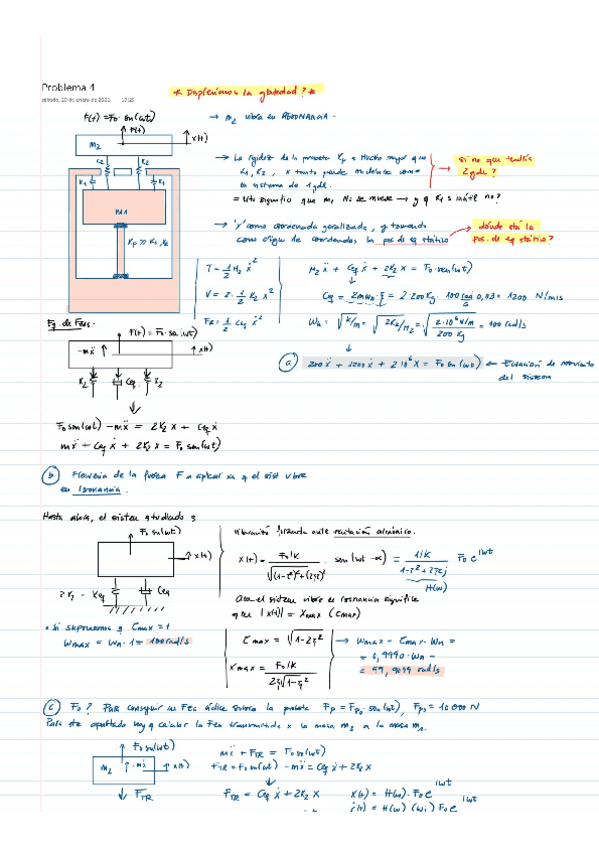 Problema 4
* Despreciamos la gravedad? *
sábado, 23 de enero de 2021
F(t) = F0 · sen(ωt)
→ m2 vibra en RESONANCIA.
F(t)
x(t)
m2
K2
K1
K1
m1
Kp >> K1, K2
→ La rigidez de la probeta Kp es mucho mayor que
K1, K2, x tanto puede modelarse como
un sistema de 1 gdl.
si no que tendría
2 gdl?
= esto significa que m1 no se mueve → y q K1 es inútil no?
→ 'x' como coordenada generalizada, y tomando
como origen de coordenadas la pos de eq estático
dónde está la
pos. de eq estático?
T = 1/2 M2 ẋ²
V = 2 · 1/2 K2 x²
FR = 1/2 Ceq ẋ²
M2 ẍ + Ceq ẋ + 2K2 x = F0 · sen(ωt)
Ceq = 2mωn · ξ = 2 · 200 Kg · 100 rad/s · 0,03 = 1200 N/m/s
ωn = √K/m = √2K2/M2 = √2·10⁶ N/m / 200 Kg = 100 rad/s
a) 200 ẍ + 1200 ẋ + 2·10⁶ x = F0 sen(ωt) ← Ecuación de movimiento
del sistema
Eq. de Fzas.
F(t) = F0 · sen(ωt)
-mẍ
x(t)
K2 Ceq K2
F0 sen(ωt) - mẍ = 2K2 x + Ceq ẋ
mẍ + Ceq ẋ + 2K2 x = F0 sen(ωt)
b) Frecuencia de la fuerza F a aplicar xa q el sist vibre
en resonancia.
Hasta ahora, el sistema estudiado es
F0 sen(ωt)
x(t)
2K2 = Keq
Ceq
vibración forzada ante excitación armónica.
x(t) = F0/K / √(1-τ²)²+(2τξ)² · sen(ωt-α) = 1/K / 1-τ²+2τξj F0 e^iωt
H(ω)
que el sistema vibre en resonancia significa
que |x(t)| = Xmax (τmax)
• si suponemos q τmax = 1
ωmax = ωn · 1 = 100 rad/s
τmax = √1-2ξ²
Xmax = F0/K / 2ξ√1-ξ²
→ ωmax = τmax · ωn =
= 0,9990 · ωn =
c) F0? Para conseguir una Fza ádice sobre la probeta Fp = Fp0 · sen(ωt), Fp0 = 10 000 N
Para este apartado hay q calcular la Fza transmitida x la masa m2 a la masa m1.
F0 sen(ωt)
m2
-mẍ
x(t)
FTR
mẍ + FTR = F0 sen(ωt)
FTR = F0 sen(ωt) - mẍ = Ceq ẋ + 2K2 x
FTR = Ceq ẋ + 2K2 x
x(t) = H(ω) · F0 e^iωt
ẋ(t) = H(ω) (ωi) F0 e^iωt